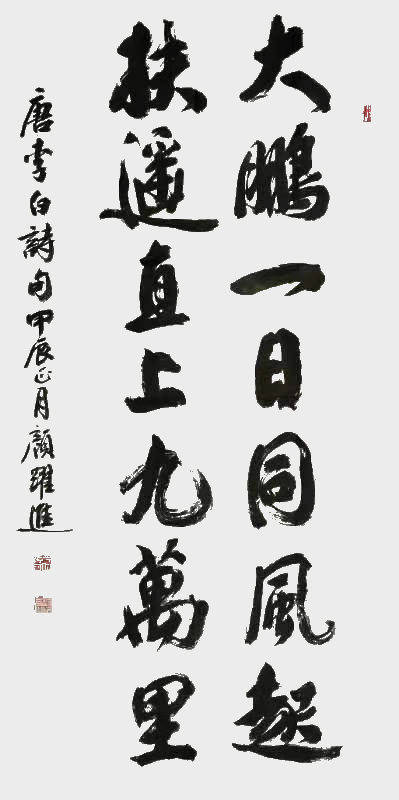 大鵬一日同風起
扶遥直上九萬里
唐李白詩句甲辰正月顏躍進